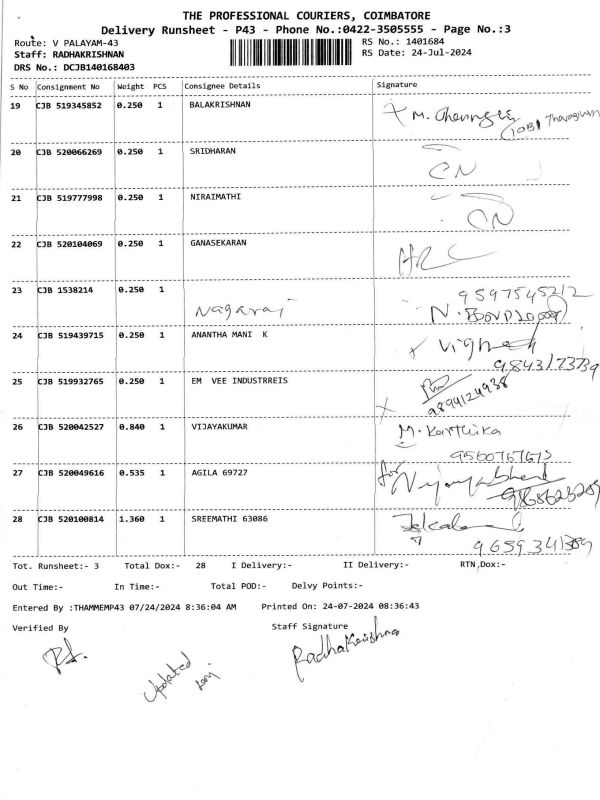 THE PROFESSIONAL COURIERS, COIMBATORE
Delivery Runsheet - P43 - Phone No.:0422-3505555 - Page No.:3
Route: V PALAYAM-43 RS No.: 1401684
Staff: RADHAKRISHNAN RS Date: 24-Jul-2024
DRS No.: DCJB140168403
S No Consignment No Weight PCS Consignee Details Signature
19 CJB 519345852 0.250 1 BALAKRISHNAN
20 CJB 520066269 0.250 1 SRIDHARAN
CN
21 CJB 519777998 0.250 1 NIRAIMATHI
CN
22 CJB 520104069 0.250 1 GANASEKARAN
23 CJB 1538214 0.250 1
9597545212
Nagaraj
24 CJB 519439715 0.250 1 ANANTHA MANI K
Vignesh
9843173739
25 CJB 519932765 0.250 1 EM VEE INDUSTRREIS
9894124938
26 CJB 520042527 0.840 1 VIJAYAKUMAR
M. Karthika
27 CJB 520049616 0.535 1 AGILA 69727
for
28 CJB 520100814 1.360 1 SREEMATHI 63086
Tot. Runsheet:- 3 Total Dox:- 28 I Delivery:- II Delivery:- RTN Dox:-
Out Time:- In Time:- Total POD:- Delvy Points:-
Entered By :THAMMEMP43 07/24/2024 8:36:04 AM Printed On: 24-07-2024 08:36:43
Verified By Staff Signature
RadhaKrishna
Updated